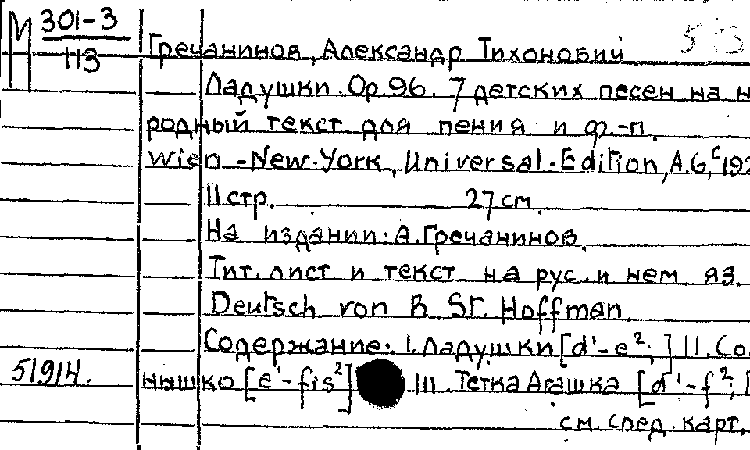 М 301-3
113
Гречанинов, Александр Тихонович
Ладушки. Op 96. 7 детских песен на н
родный текст для пения и ф.-п.
Wien - New-York, Universal-Edition, A.G, c192
11 стр. 27 см.
На издании: А. Гречанинов.
Тит. лист и текст на рус. и нем яз.
Deutsch von R St. Hoffman
Содержание: I. Ладушки [d¹-e²;] II. Со
51914. нышко [e¹-fis²] III. Тетка Агашка [d¹-f²;]
см. след. карт.